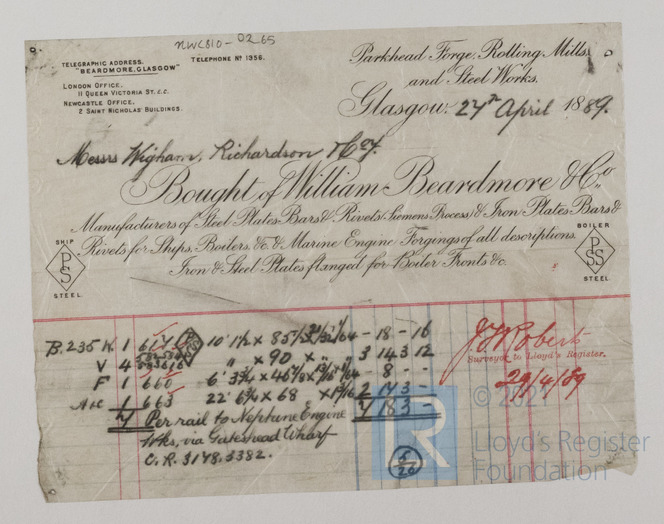 NWC810-0265
TELEGRAPHIC ADDRESS.
"BEARDMORE, GLASGOW"
TELEPHONE Nº 1356.
LONDON OFFICE,
11 QUEEN VICTORIA ST. E.C.
NEWCASTLE OFFICE,
2 SAINT NICHOLAS BUILDINGS.
Parkhead Forge, Rolling Mills,
and Steel Works.
Glasgow. 27th April 1889.
Messrs Wigham, Richardson & Coy.
Bought of William Beardmore & Co.
Manufacturers of Steel Plates Bars & Rivets (Siemens Process) & Iron Plates Bars &
Rivets for Ships, Boilers, &c. & Marine Engine Forgings of all descriptions.
Iron & Steel Plates flanged for Boiler Fronts &c.
SHIP
PSS
STEEL.
BOILER
PSS
STEEL.
B.235 K 1 10' 1½ x - 18 - 16
V 4 " x 90 x " " 3 14 3 12
F 1 660 6' 3¾ x - 8 - -
1 663 22' 6¾ x 68 x 2 17 3 -
7 7 18 3 -
Per rail to Neptune Engine
Wks, via Gateshead Wharf
C.R. 3178.3382.
5/26
J W Roberts
Surveyor to Lloyd's Register.
29/4/89
© 2021
LR
Lloyd's Register
Foundation